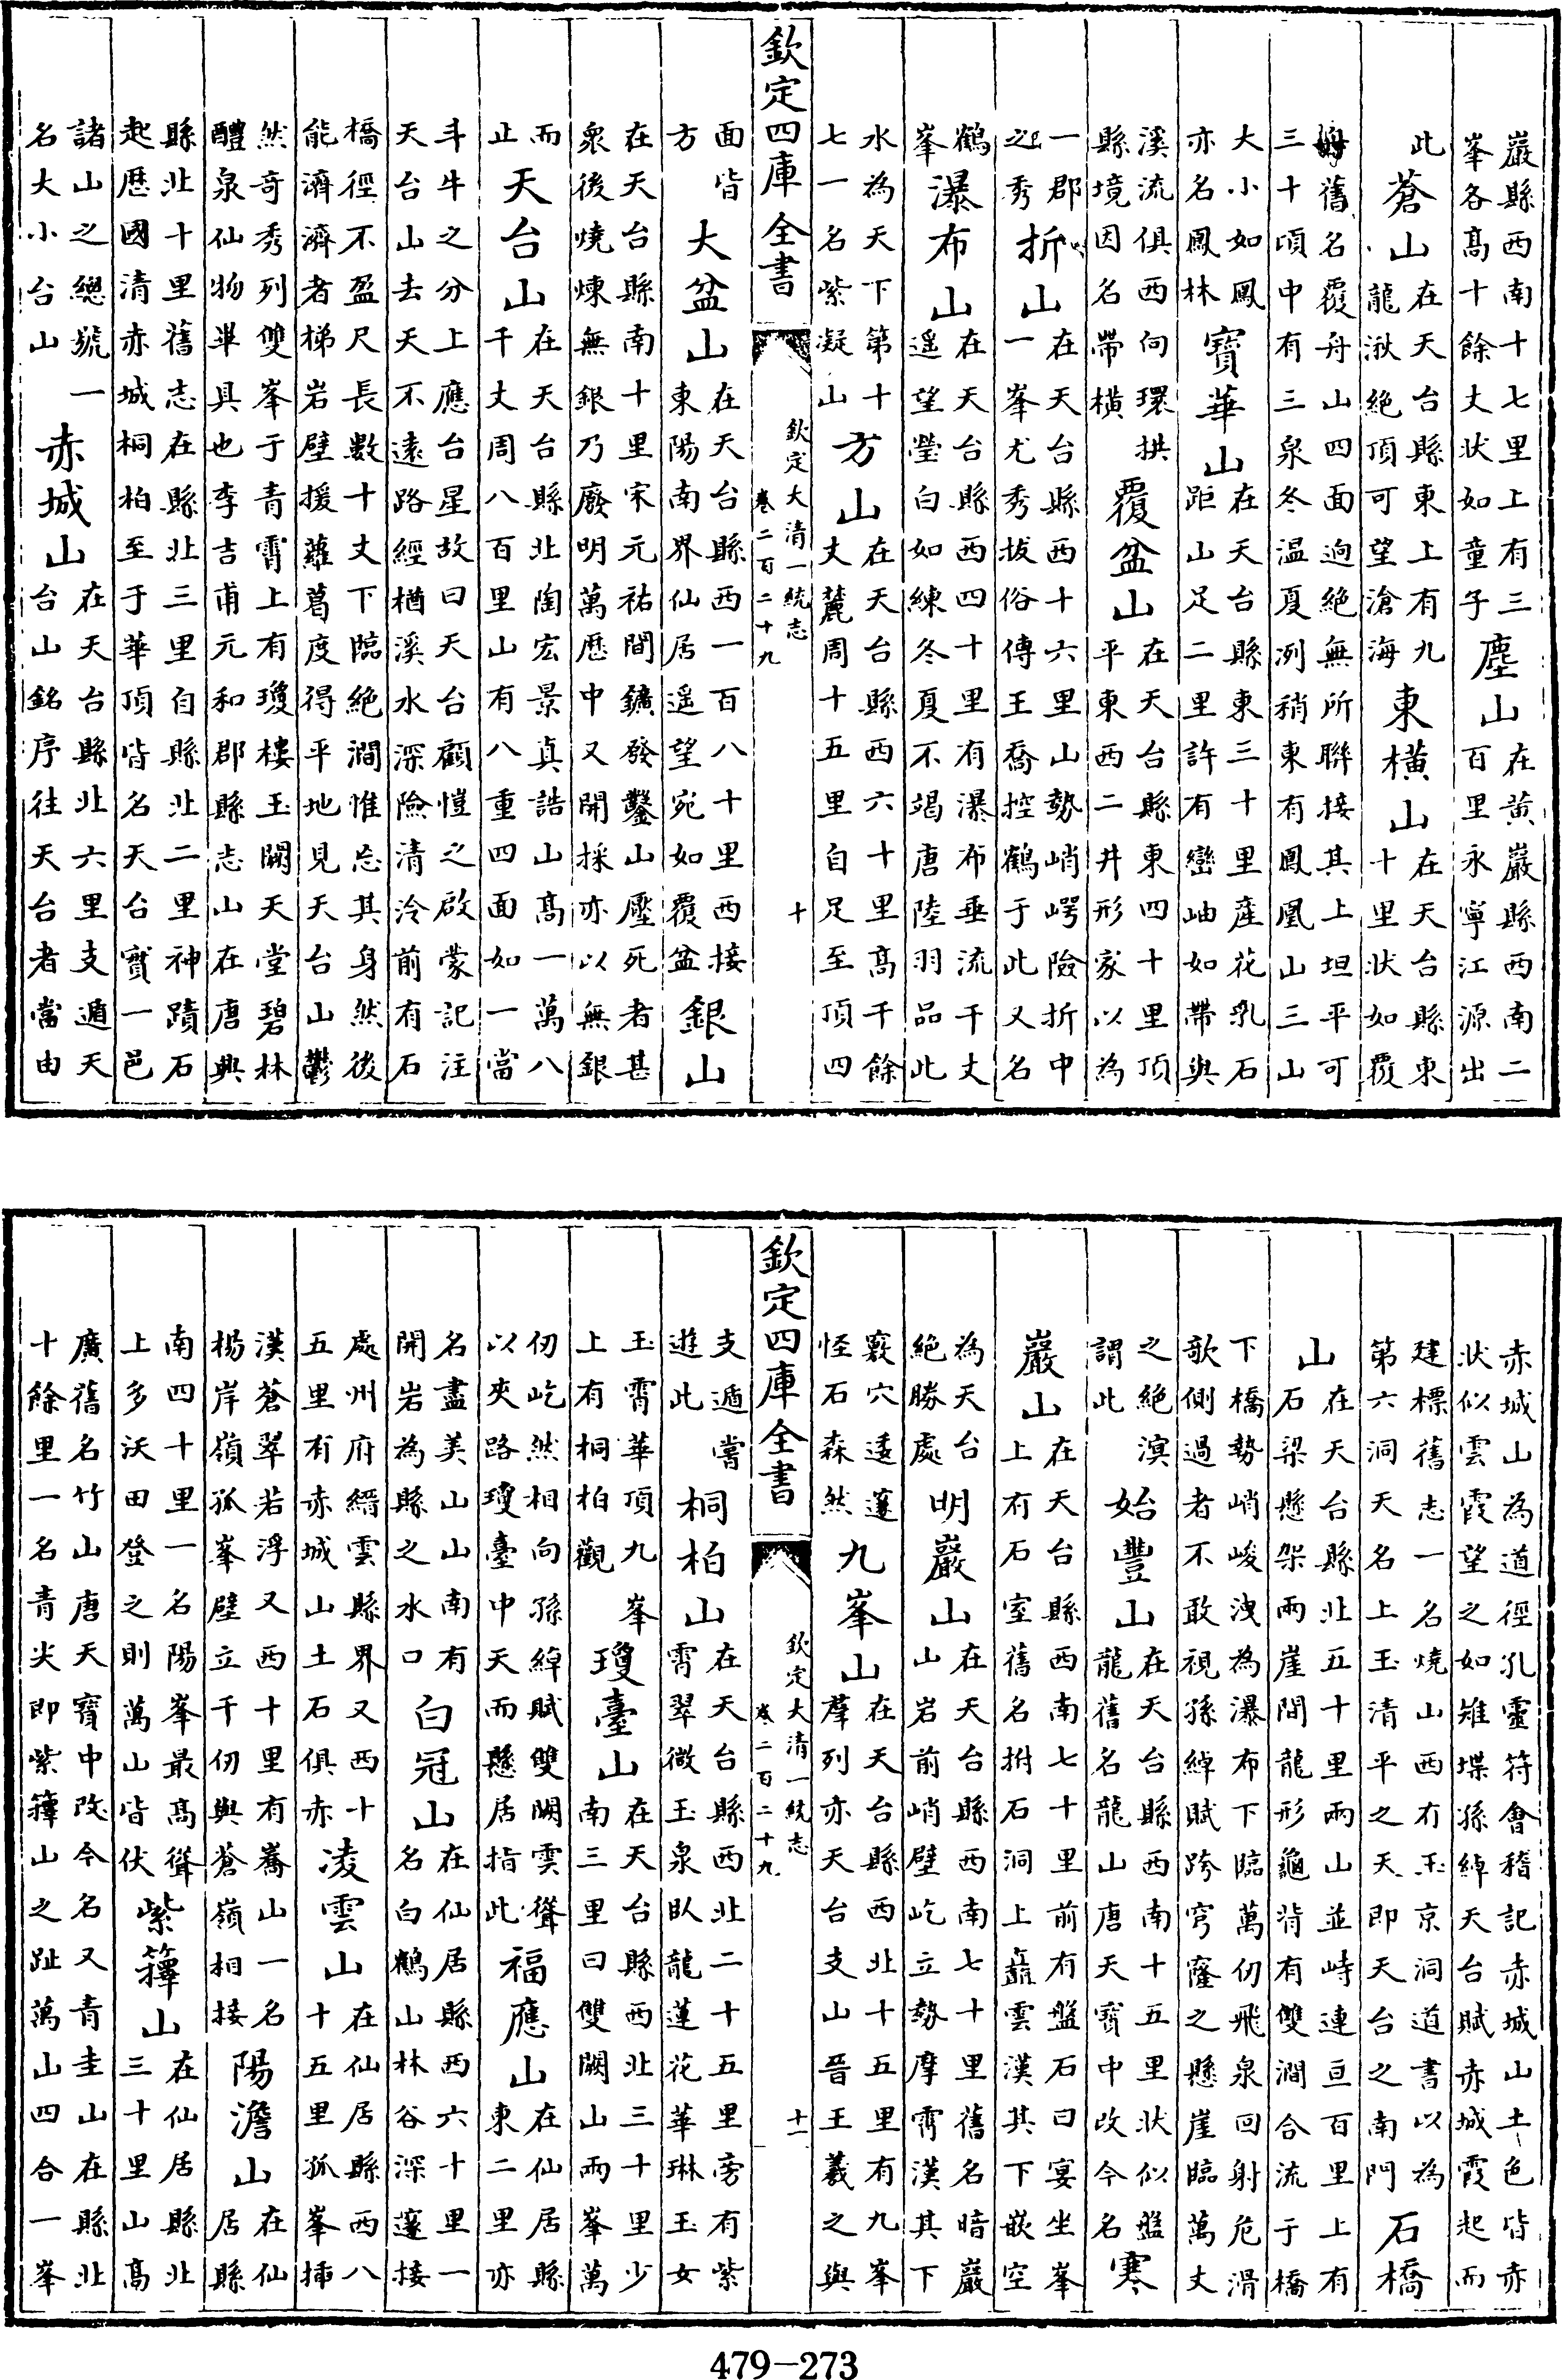 巖縣西南十七里上有三峯各髙十餘丈狀如童子塵山在黄巖縣西南二百里永寧江源出
此蒼山在天台縣東上有九龍湫絶頂可望滄海東横山在天台縣東十里狀如覆
舊名覆舟山四面逈絶無所聯接其上坦平可三十頃中有三泉冬温夏冽稍東有鳳凰山三山
大小如鳳亦名鳳林寶華山在天台縣東三十里産花乳石距山足二里許有巒岫如帶與
溪流俱西向環拱縣境因名帶横覆盆山在天台縣東四十里頂平東西二井形家以為
一郡之秀折山在天台縣西十六里山勢峭崿險折中一峯尤秀拔俗傳王喬控鶴于此又名
鶴峯瀑布山在天台縣西四十里有瀑布垂流千丈遥望瑩白如練冬夏不竭唐陸羽品此
水為天下第十七一名紫凝山方山在天台縣西六十里髙千餘丈麓周十五里自足至頂四
欽定四庫全書
欽定大清一統志
卷二百二十九
十
面皆方大盆山在天台縣西一百八十里西接東陽南界仙居遥望宛如覆盆銀山
在天台縣南十里宋元祐間鑛發鑿山壓死者甚衆後燒煉無銀乃廢明萬厯中又開採亦以無銀
而止天台山在天台縣北陶宏景真誥山髙一萬八千丈周八百里山有八重四面如一當
斗牛之分上應台星故曰天台顧愷之啟蒙記注天台山去天不遠路經楢溪水深險清泠前有石
橋徑不盈尺長數十丈下臨絶澗惟忘其身然後能濟濟者梯岩壁援蘿葛度得平地見天台山鬱
然奇秀列雙峯于青霄上有瓊樓玉闕天堂碧林醴泉仙物畢具也李吉甫元和郡縣志山在唐興
縣北十里舊志在縣北三里自縣北二里神蹟石起歴國清赤城桐柏至于華頂皆名天台實一邑
諸山之總號一名大小台山赤城山在天台縣北六里支遁天台山銘序往天台者當由
赤城山為道徑孔靈符會稽記赤城山土色皆赤狀似雲霞望之如雉堞孫綽天台賦赤城霞起而
建標舊志一名燒山西有玉京洞道書以為第六洞天名上玉清平之天即天台之南門石橋
山在天台縣北五十里兩山並峙連亘百里上有石梁懸架兩崖間龍形龜背有雙澗合流于橋
下橋勢峭峻洩為瀑布下臨萬仞飛泉回射危滑歌側過者不敢視孫綽賦跨穹窿之懸崖臨萬丈
之絶溟謂此始豐山在天台縣西南十五里狀似盤龍舊名龍山唐天寶中改今名寒
巖山在天台縣西南七十里前有盤石曰宴坐峯上有石室舊名拊石洞上矗雲漢其下嵌空
為天台絶勝處明巖山在天台縣西南七十里舊名暗巖山岩前峭壁屹立勢摩霄漢其下
竅穴逶邃怪石森然九峯山在天台縣西北十五里有九峯羣列亦天台支山晉王羲之與
欽定四庫全書
欽定大清一統志
卷二百二十九
十一
支遁嘗遊此桐柏山在天台縣西北二十五里旁有紫霄翠微玉泉臥龍蓮花華琳玉女
玉霄華頂九峯上有桐柏觀瓊臺山在天台縣西北三十里少南三里曰雙闕山兩峯萬
仞屹然相向孫綽賦雙闕雲聳以夾路瓊臺中天而懸居指此福應山在仙居縣東二里亦
名盡美山山南有開岩為縣之水口白冠山在仙居縣西六十里一名白鶴山林谷深邃接
處州府縉雲縣界又西十五里有赤城山土石俱赤凌雲山在仙居縣西八十五里孤峯插
漢蒼翠若浮又西十里有蕎山一名楊岸嶺孤峯壁立千仞與蒼嶺相接陽澹山在仙居縣
南四十里一名陽峯最髙聳上多沃田登之則萬山皆伏紫籜山在仙居縣北三十里山髙
廣舊名竹山唐天寶中改今名又青圭山在縣北十餘里一名青尖即紫籜山之趾萬山四合一峯
479-273